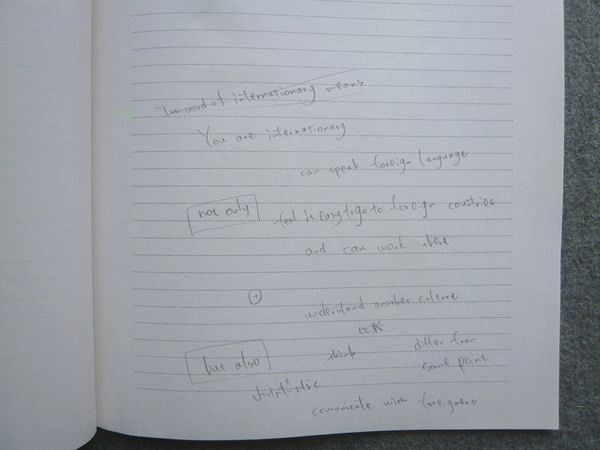 The word of internationary means
You are internationary
can speak foreign language
not only
feel is easy to go to foreign countries
and can work
+
understand another culture
比較
but also
think
differ from
same point
comunicate with foreigners